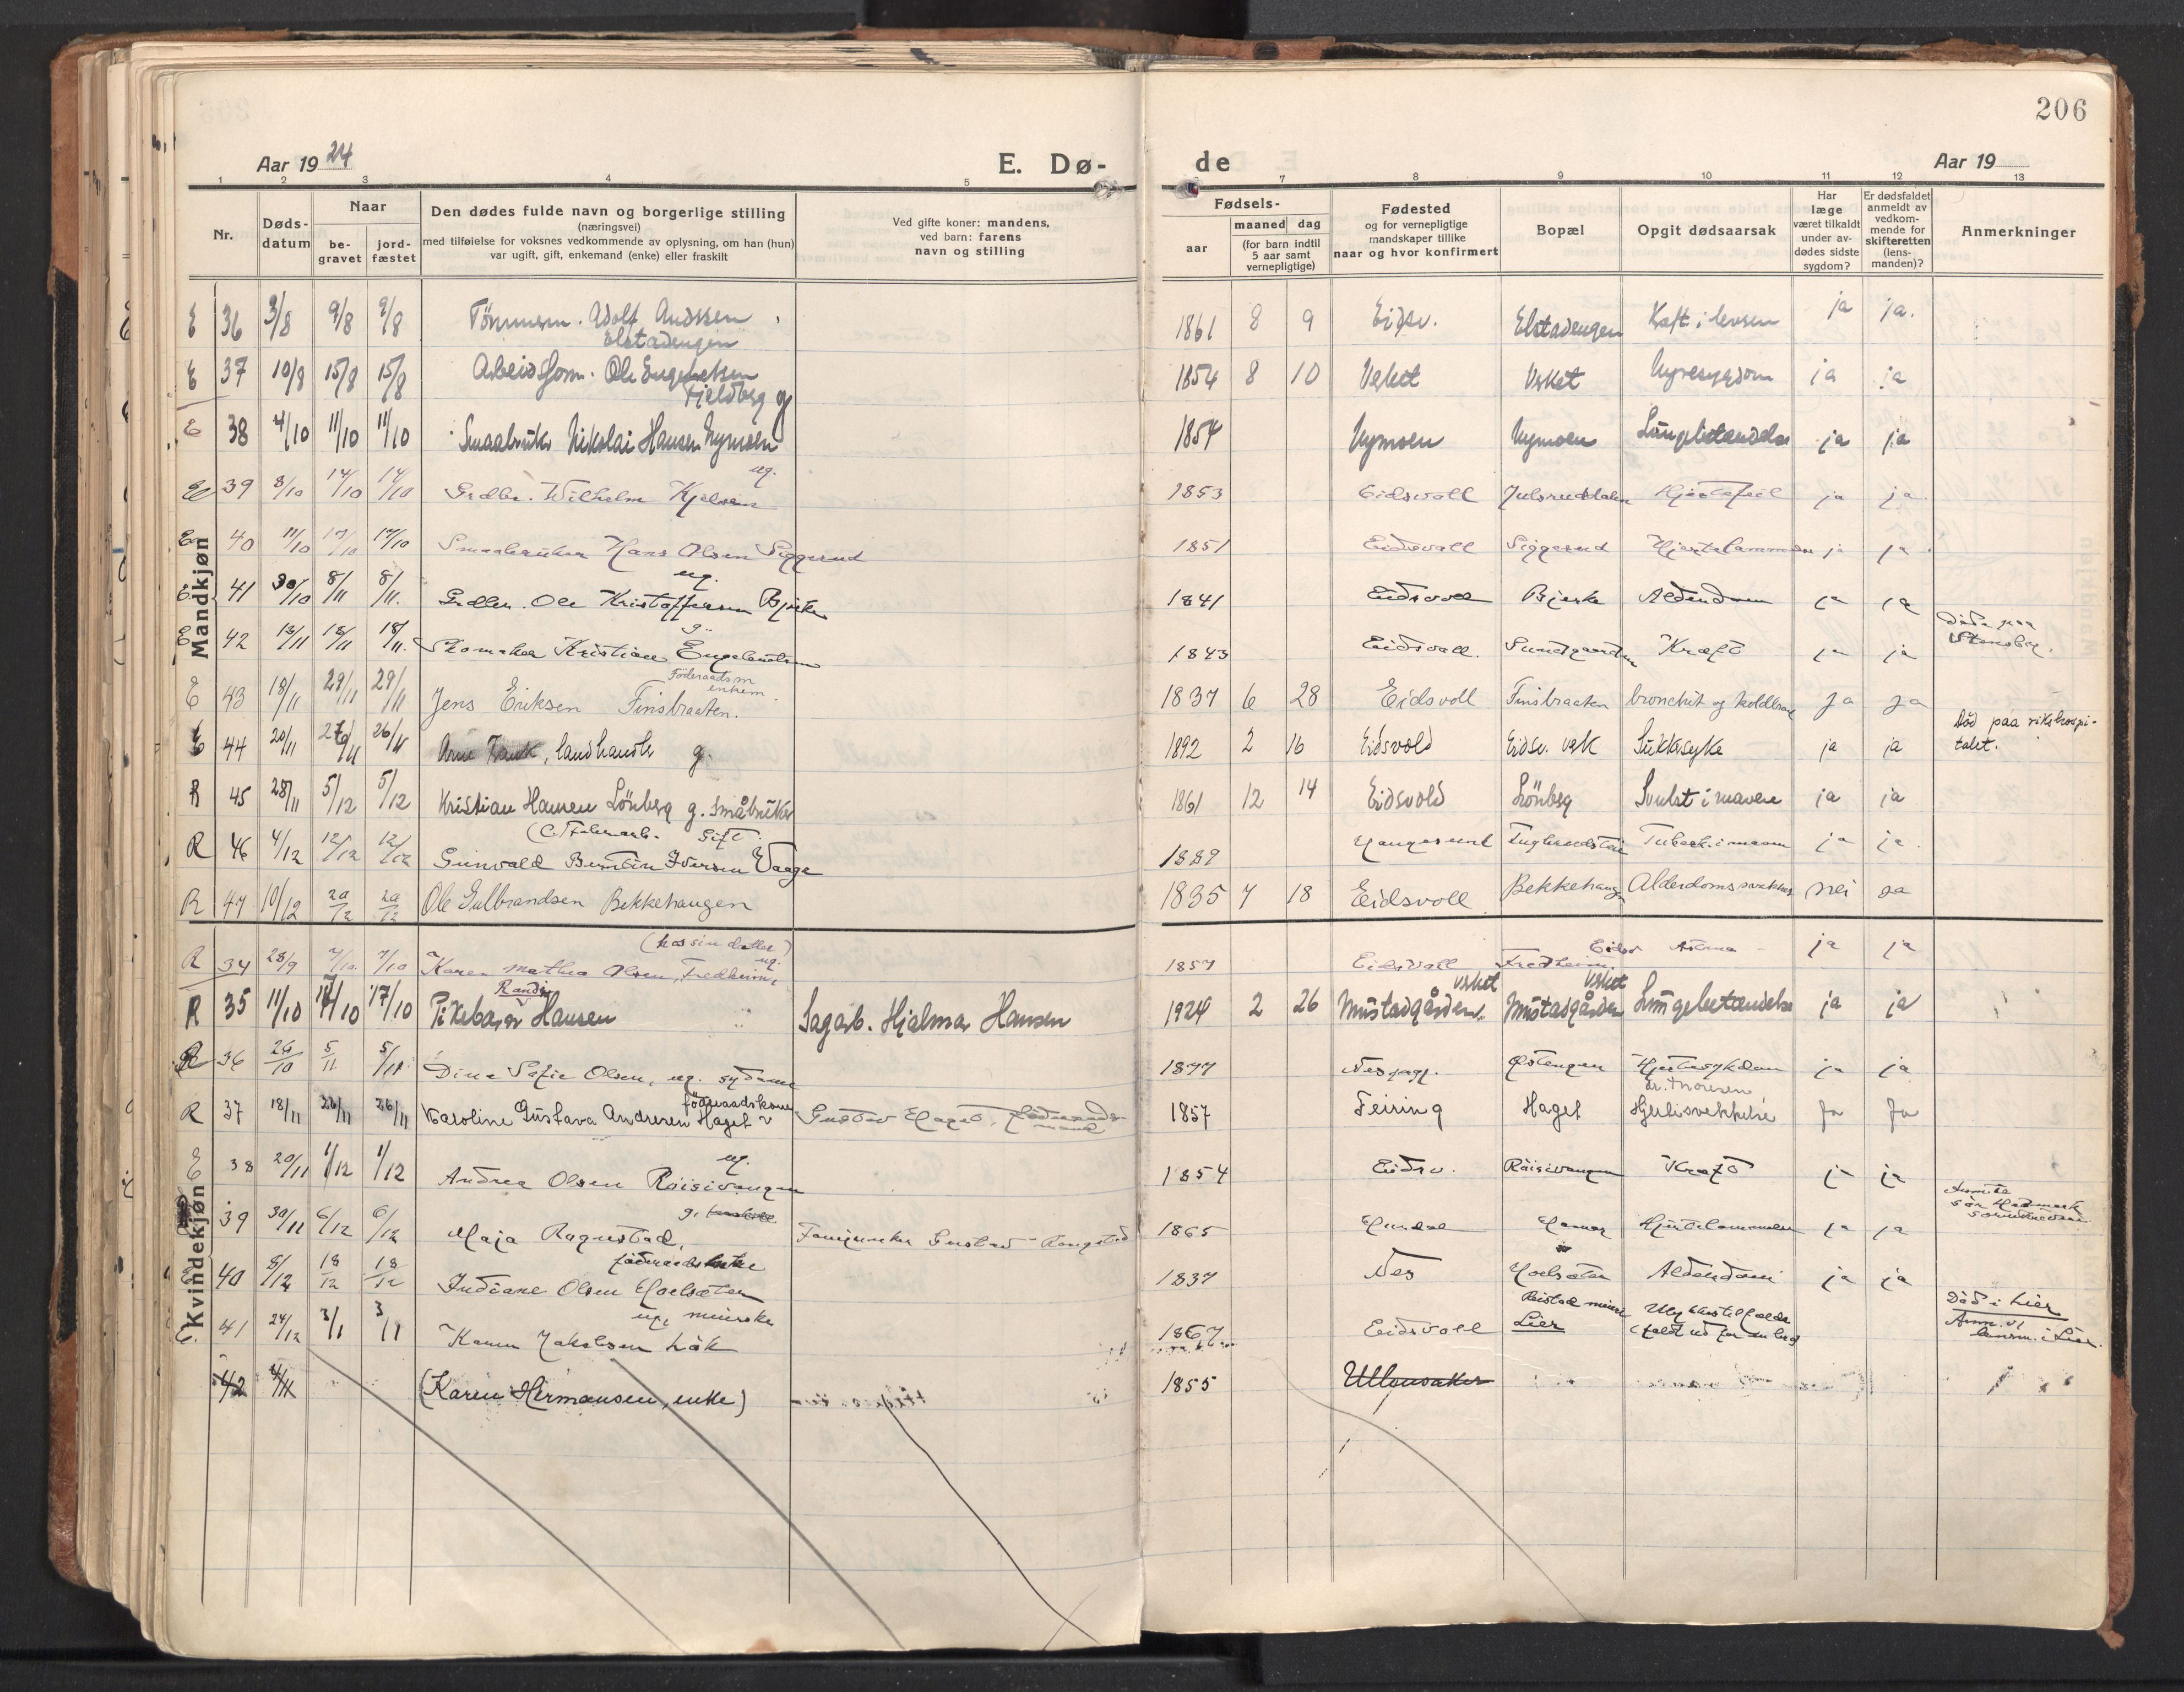 206
Aar 1924
E. Dø-
de
Aar 19
1 2 3 4 5 7 8 9 10 11 12 13
Nr.
Døds-
datum
Naar
be-
gravet
jord-
fæstet
Den dødes fulde navn og borgerlige stilling
(næringsvei)
med tilføielse for voksnes vedkommende av oplysning, om han (hun)
var ugift, gift, enkemand (enke) eller fraskilt
Ved gifte koner: mandens,
ved barn: farens
navn og stilling
Fødsels-
aar
maaned dag
(for barn indtil
5 aar samt
vernepligtige)
Fødested
og for vernepligtige
mandskaper tillike
naar og hvor konfirmert
Bopæl
Opgit dødsaarsak
Har
læge
været tilkaldt
under av-
dødes sidste
sygdom?
Er dødsfaldet
anmeldt av
vedkom-
mende for
skifteretten
(lens-
manden)?
Anmerkninger
Mandkjøn
E 36 3/8 9/8 9/8 Tömmerm. Adolf Andssen 1861 8 9 Eidsv. Elstadengen Kræft i leveren ja ja.
Elstadengen
E 37 10/8 15/8 15/8 Arbeidsform. Ole Engebretsen 1854 8 10 Verket Verket Nyresygdom ja ja
Fjeldberg g
E 38 4/10 11/10 11/10 Smaabruker Nikolai Hansen Nymoen 1854 Nymoen Nymoen Lungebetændelse ja ja
ug.
39 8/10 14/10 14/10 Grdbr. Wilhelm Kjelsen 1853 Eidsvoll Julsruddalen Hjertefeil ja ja
40 11/10 17/10 17/10 Smaabruker Hans Olsen Siggerud 1851 Eidsvoll Siggerud Hjertelammelse ja ja
ug.
E 41 30/10 8/11 8/11. Grdbr. Ole Kristoffersen Bjerke 1841 Eidsvoll Bjerke Alderdom ja ja
g.
E 42 13/11 18/11 18/11. Skomaker Kristian Engebretsen 1843 Eidsvoll. Sundgaarden Kræft ja ja
Døde paa
Stensby.
Føderaadsm
enkem.
E 43 18/11 29/11 29/11 Jens Eriksen Finsbraaten. 1837 6 28 Eidsvoll Finsbraaten bronchit og koldbrand ja ja
E 44 20/11 26/11 26/11 Arne Frank, landhandler g. 1892 2 16 Eidsvold Eidsv. verk Sukkersyke ja ja
Död paa rikshospi-
talet.
R 45 28/11 5/12 5/12 Kristian Hansen Lönberg g. småbruker 1861 12 14 Eidsvold Lönberg Svulst i maven ja ja
Gift
R 46 4/12 12/12 12/12 Gunvald Berntin Iversen Vaage 1889 Haugesund ja ja.
R 47 10/12 20/12 20/12 Ole Gulbrandsen Bekkehaugen 1835 7 18 Eidsvoll Bekkehaugen Alderdomssvakhet nei ja
Kvindekjøn
(hos sin datter)
ug.
R 34 28/9 7/10 7/10 Karen Mathea Olsen, Fredheim, 1857 Eidsvoll Fredheim. Eidsv Astma ja ja
Randi
R 35 11/10 17/10 17/10 Pikebarn Hansen Sagarb. Hjalmar Hansen 1924 2 26 Mustadgården Verket Mustadgården Verket Lungebetændelse ja ja
R 36 26/10 5/11 5/11 Dina Sofie Olsen, ug. sydame 1877 Nes pgj. Østengen Hjertesykdom ja ja
dr. Thoresen
föderaadskone
R 37 18/11 26/11 26/11 Karoline Gustava Andresen Haget Gustav Haget, föderaads-
mand
1857 Feiring Haget Hjertesvekkelse Ja Ja
ug.
E 38 20/11 1/12 1/12 Andrea Olsen Röisivangen 1854 Eidsv. Röisivangen Kræft ja ja
g.
39 30/11 6/12 6/12 Maja Rognstad, Gustav Rongstad 1865 Hurdal Hamar Hjertelammelse ja ja
föderaadsenke
E 40 8/12 18/12 18/12 Indiane Olsen Hoelsæter 1837 Nes Hoelsæter Alderdom ja ja
ug. meierske
E. 41 24/12 3/1 3/1 Karen Jakobsen Løk 1867 Eidsvoll Reistad meieri
Lier
Død i Lier
Anm. v/
lensm. i Lier.
42 (Karen Hermansen, enke) 1855 Ullensaker